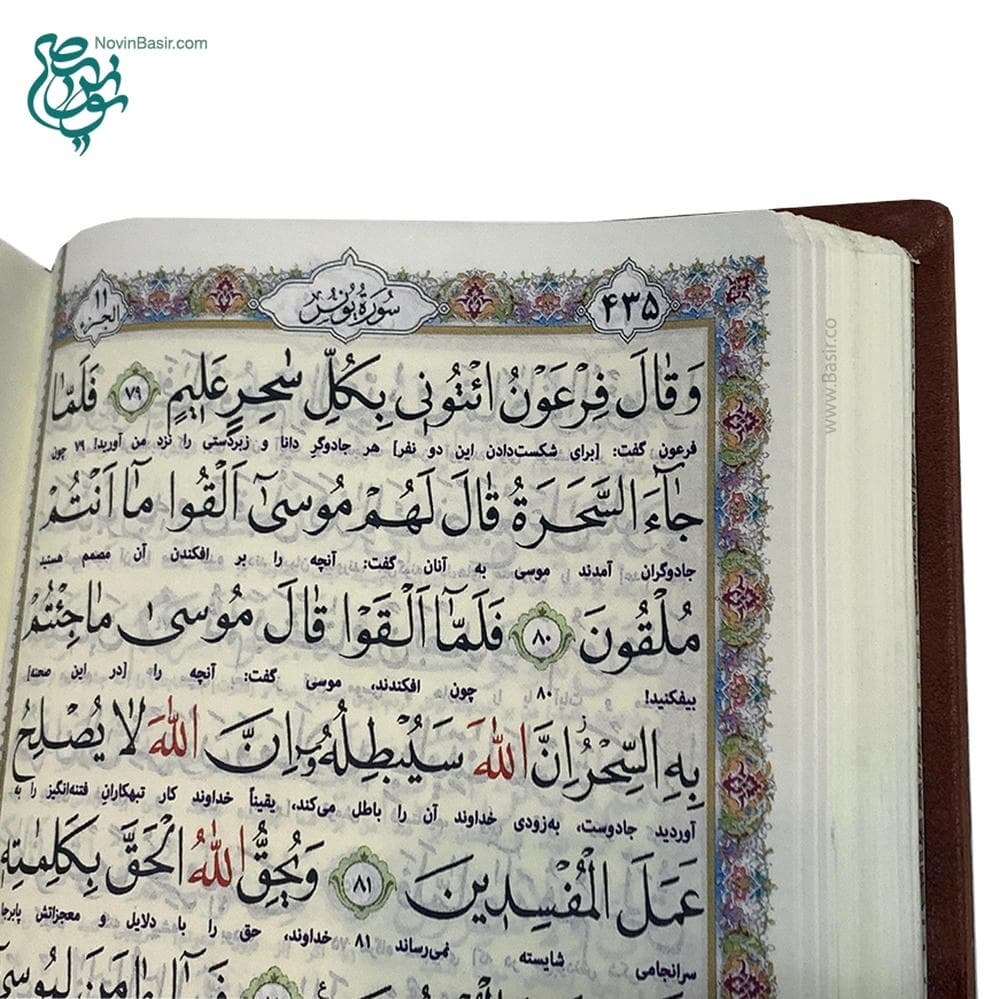 NovinBasir.com
الجزء ۱۱
سُورَةُ يُونُس
۴۳۵
www.Basir.co
وَقَالَ فِرْعَوْنُ ائْتُونِي بِكُلِّ سَٰحِرٍ عَلِيمٍ ۷۹ فَلَمَّا
فرعون گفت: [برای شکست‌دادن این دو نفر] هر جادوگرِ دانا و زبردستی را نزد من آورید! ۷۹ چون
جَآءَ السَّحَرَةُ قَالَ لَهُمْ مُوسَىٰٓ اَلْقُوا مَآ اَنْتُمْ
جادوگران آمدند موسی به آنان گفت: آنچه را بر افکندن آن مصمم هستید
مُلْقُونَ ۸۰ فَلَمَّآ اَلْقَوْا قَالَ مُوسَىٰ مَا جِئْتُمْ
بیفکنید! ۸۰ چون افکندند، موسی گفت: آنچه را [در این صحنه]
بِهِ السِّحْرُ اِنَّ اللّٰهَ سَيُبْطِلُهُٓ اِنَّ اللّٰهَ لَا يُصْلِحُ
آوردید جادوست، به‌زودی خداوند آن را باطل می‌کند، یقیناً خداوند کار تبهکارانِ فتنه‌انگیز را به
عَمَلَ الْمُفْسِدِينَ ۸۱ وَيُحِقُّ اللّٰهُ الْحَقَّ بِكَلِمَٰتِهِ
سرانجامی شایسته نمی‌رساند ۸۱ خداوند، حق را با دلایل و معجزاتش پابرجا